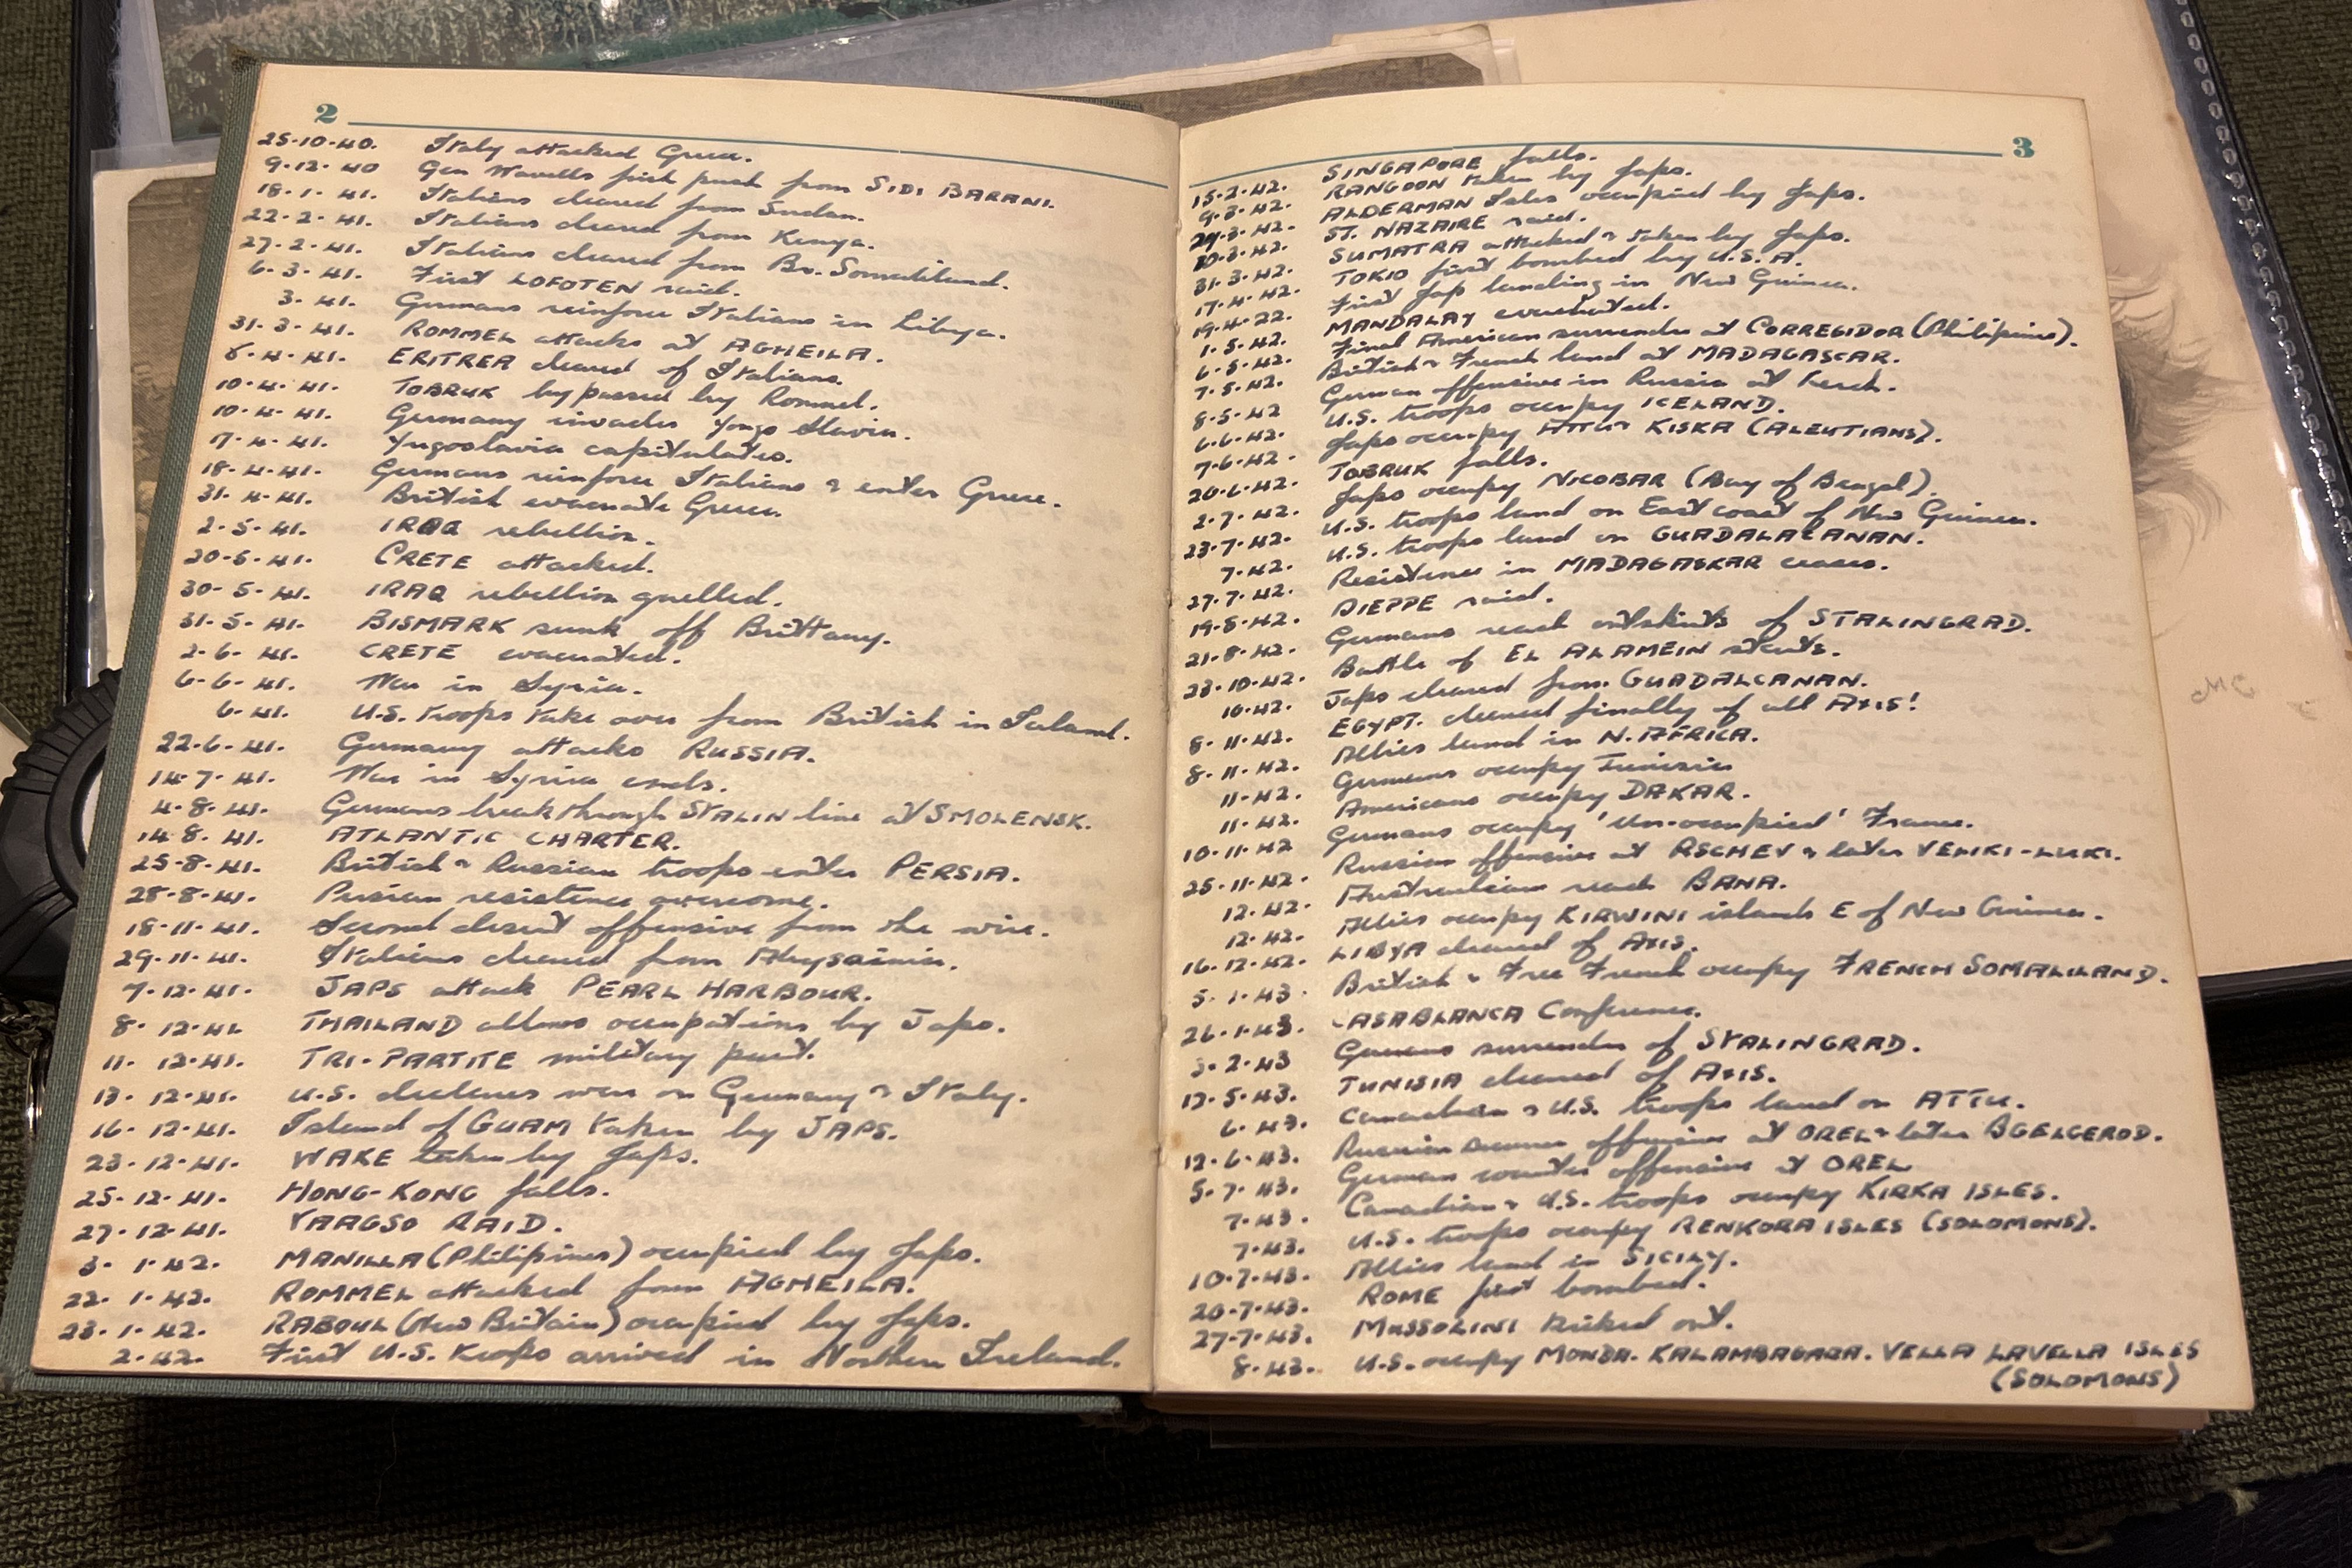 2
25-10-40. Italy attacked Greece.
9-12-40 Gen Wavells first push from SIDI BARANI.
18-1-41. Italians cleared from Sudan.
22-2-41. Italians cleared from Kenya.
27-2-41. Italians cleared from Br. Somaliland.
6-3-41. First LOFOTEN raid.
3-41. Germans reinforce Italians in Libya.
31-3-41. ROMMEL attacks at AGHEILA.
8-4-41. ERITREA cleared of Italians.
10-4-41. TOBRUK bypassed by Rommel.
10-4-41. Germany invades Yugo Slavia.
17-4-41. Yugoslavia capitulates.
18-4-41. Germans reinforce Italians & enter Greece.
31-4-41. British evacuate Greece.
2-5-41. IRAQ rebellion.
20-5-41. CRETE attacked.
30-5-41. IRAQ rebellion quelled.
31-5-41. BISMARK sunk off Brittany.
2-6-41. CRETE evacuated.
6-6-41. War in Syria.
6-41. U.S. troops take over from British in Iceland.
22-6-41. Germany attacks RUSSIA.
14-7-41. War in Syria ends.
4-8-41. Germans break through STALIN line at SMOLENSK.
14-8-41. ATLANTIC CHARTER.
25-8-41. British & Russian troops enter PERSIA.
28-8-41. Persian resistence overcome.
18-11-41. Second desert offensive from the wire.
29-11-41. Italians cleared from Abyssinia.
7-12-41. JAPS attack PEARL HARBOUR.
8-12-41 THAILAND allows occupations by Japs.
11-12-41. TRI-PARTITE military pact.
13-12-41. U.S. declares war on Germany & Italy.
16-12-41. Island of GUAM taken by JAPS.
23-12-41. WAKE taken by Japs.
25-12-41. HONG-KONG falls.
27-12-41. VAAGSO RAID.
3-1-42. MANILLA (Philipines) occupied by Japs.
22-1-42. ROMMEL attacked from AGHEILA.
23-1-42. RABOUL (New Britain) occupied by Japs.
2-42. First U.S. troops arrived in Northern Ireland.
3
15-2-42. SINGAPORE falls.
9-3-42. RANGOON taken by Japs.
29-3-42. ALDERMAN Isles occupied by Japs.
30-3-42. ST. NAZAIRE raid.
31-3-42. SUMATRA attacked & taken by Japs.
17-4-42. TOKIO first bombed by U.S.A.
19-4-22. First Jap landing in New Guinea.
1-5-42. MANDALAY evacuated.
6-5-42. Final American surrender at CORREGIDOR (Philipines).
7-5-42. British & French land at MADAGASCAR.
8-5-42 German offensive in Russia at Kerch.
6-6-42. U.S. troops occupy ICELAND.
7-6-42. Japs occupy ATTU & KISKA (ALEUTIANS).
20-6-42. TOBRUK falls.
2-7-42. Japs occupy NICOBAR (Bay of Bengal).
23-7-42. U.S. troops land on East coast of New Guinea.
7-42. U.S. troops land on GUADALACANAN.
27-7-42. Resistence in MADAGASKAR ceases.
19-8-42. DIEPPE raid.
21-8-42. Germans reach outskirts of STALINGRAD.
23-10-42. Battle of EL ALAMEIN starts.
10-42. Japs cleared from GUADALCANAN.
8-11-42. EGYPT. cleared finally of all Axis!
8-11-42. Allies land in N. AFRICA.
11-42. Germans occupy Tunisia
11-42. Americans occupy DAKAR.
10-11-42 Germans occupy 'Un-occupied' France.
25-11-42. Russian offensive at RSCHEV & later VELIKI-LUKI.
12-42. Australians reach BANA.
12-42. Allies occupy KIRWINI islands E of New Guinea.
16-12-42. LIBYA cleared of Axis.
5-1-43. British & Free French occupy FRENCH SOMALILAND.
26-1-43. CASABLANCA Conference.
3-2-43 Germans surrender of STALINGRAD.
13-5-43. TUNISIA cleared of AXIS.
6-43. Canadian & U.S. troops land on ATTU.
12-6-43. Russian summer offensive at OREL & later BGELGEROD.
5-7-43. German counter offensive at OREL
7-43. Canadian & U.S. troops occupy KIRKA ISLES.
7-43. U.S. troops occupy RENKORA ISLES (SOLOMONS).
10-7-43. Allies land in SICILY.
20-7-43. ROME first bombed.
27-7-43. MUSSOLINI kicked out.
8-43. U.S. occupy MONDA. KALAMBAGARA. VELLA LAVELLA ISLES
(SOLOMONS)